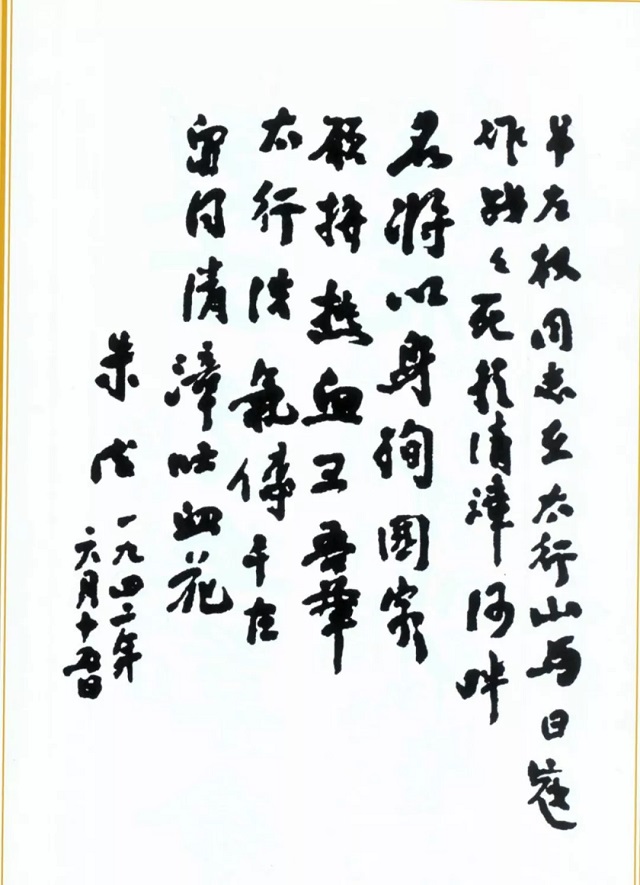 吊左权同志在太行山与日寇
作战々死於清漳河畔
名将以身殉國家
願拼热血卫吾華
太行浩氣傳千古
留得清漳吐血花
朱德
一九四二年
六月十五日